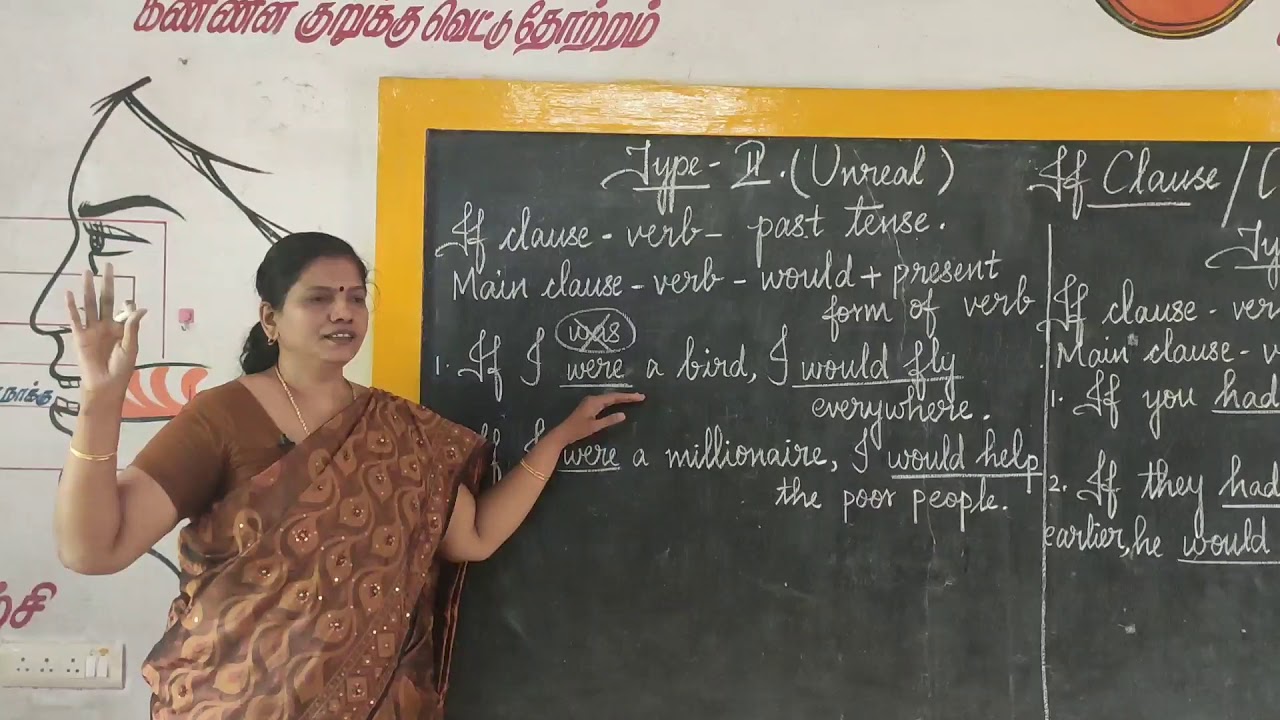 கண்ணின் குறுக்கு வெட்டு தோற்றம்
நாக்கு
Type - II. (Unreal)
If clause - verb - past tense.
Main clause - verb - would + present
form of verb
was
1. If I were a bird, I would fly
everywhere.
If I were a millionaire, I would help
the poor people.
If Clause /
If clause -
Main clause -
1. If you had
2. If they had
earlier, he would